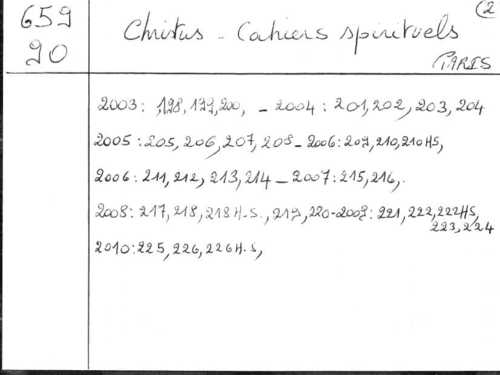 659
90
2
Christus - Cahiers spirituels
PARIS
2003 : 198, 199, 200, - 2004 : 201, 202, 203, 204
2005 : 205, 206, 207, 208 - 2006 : 209, 210, 210 HS,
2006 : 211, 212, 213, 214 - 2007 : 215, 216,
2008 : 217, 218, 218 H.S., 219, 220 - 2009 : 221, 222, 222 HS,
223, 224
2010 : 225, 226, 226 H.S,